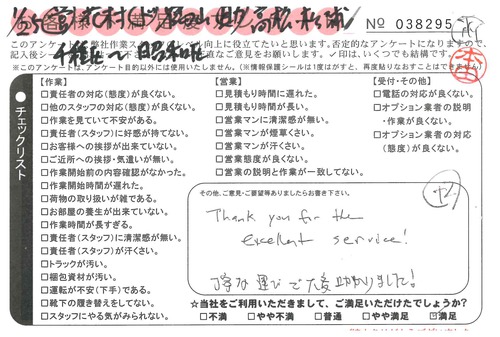 No 038295
このアンケートは弊社作業スタッフのレベル向上に役立てたいと思います。否定的なアンケートになりますので、
記入後シールを貼って直ぐにご意見をお願いします。✓印は、いくつでも結構です。
※このアンケートは、アンケート目的以外には使用いたしません。(※情報保護シールは1度はがすと、再度貼りなおすことはできません)
チェックリスト
【作業】
□責任者の対応(態度)が良くない。
□他のスタッフの対応(態度)が良くない。
□作業を見ていて不安がある。
□責任者(スタッフ)に好感が持てない。
□お客様への挨拶が出来ていない。
□ご近所への挨拶・気遣いが無い。
□作業開始前の内容確認がなかった。
□作業開始時間が遅れた。
□荷物の取り扱いが雑である。
□お部屋の養生が出来ていない。
□作業時間が長すぎる。
□責任者(スタッフ)に清潔感が無い。
□責任者(スタッフ)が汗くさい。
□トラックが汚い。
□梱包資材が汚い。
□運転が不安(下手)である。
□靴下の履き替えをしてない。
□スタッフにやる気がみられない。
【営業】
□見積もり時間に遅れた。
□見積もり時間が長い。
□営業マンに清潔感が無い。
□営業マンが煙草くさい。
□営業マンが汗くさい。
□営業態度が良くない。
□営業の説明と作業が一致してない。
【受付・その他】
□電話の対応が良くない。
□オプション業者の説明
・作業が良くない。
□オプション業者の対応
(態度)が良くない。
その他、ご意見・ご要望等ありましたらお書き下さい。
Thank you for the
excellent service!
丁寧な運びで大変助かりました!
☆当社をご利用いただきまして、ご満足いただけてしょうか?
□不満 □やや不満 □普通 □やや満足 ☑満足